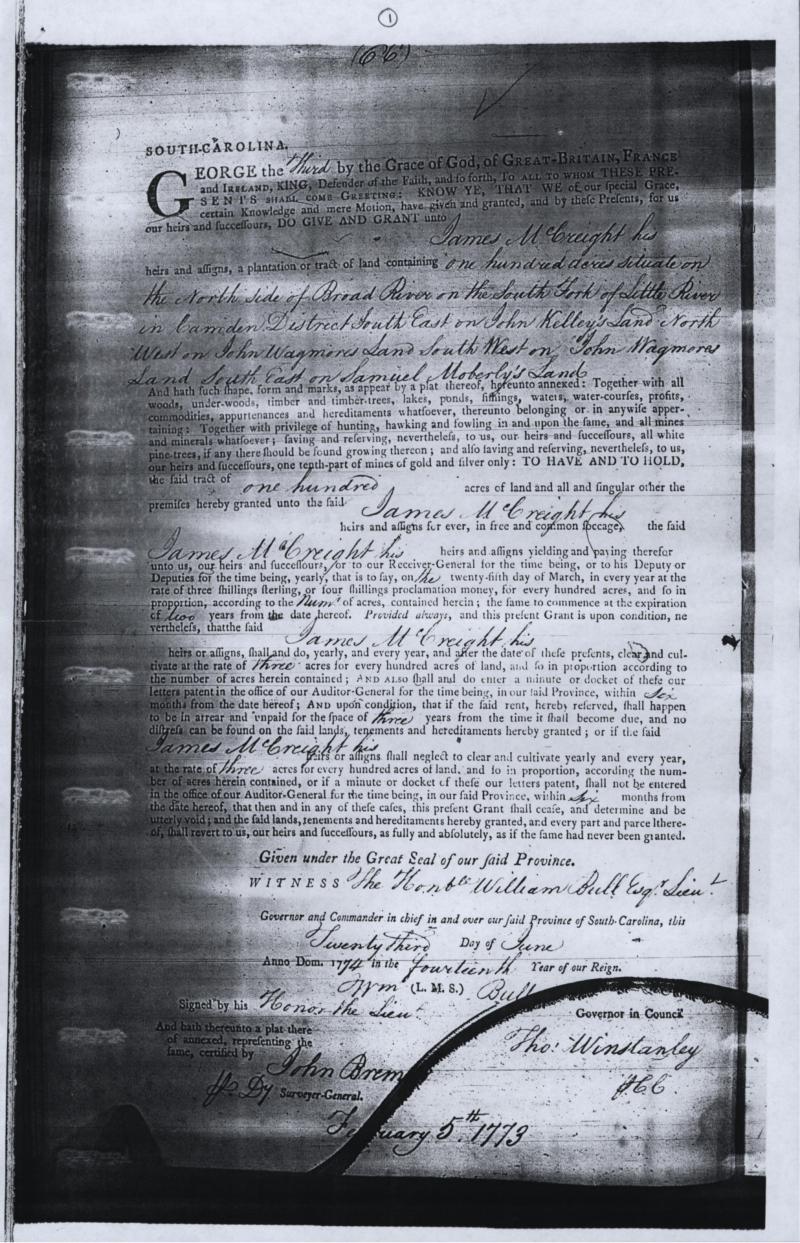 1
(66)
SOUTH-CAROLINA.
GEORGE the Third by the Grace of God, of GREAT-BRITAIN, FRANCE
and IRELAND, KING, Defender of the Faith, and so forth, TO ALL TO WHOM THESE PRE-
SENTS SHALL COME GREETING: KNOW YE, THAT WE of our special Grace,
certain Knowledge and mere Motion, have given and granted, and by these Presents, for us
our heirs and successours, DO GIVE AND GRANT unto
James McCreight his
heirs and assigns, a plantation or tract of land containing one hundred acres situate on
the North side of Broad River on the South Fork of Little River
in Camden District South East on John Kelley's Land North
West on John Wagmores Land South West on John Wagmores
Land South East on Samuel Moberly's Land
And hath such shape, form and marks, as appear by a plat thereof, hereunto annexed: Together with all
woods, under-woods, timber and timber-trees, lakes, ponds, fishings, waters, water-courses, profits,
commodities, appurtenances and hereditaments whatsoever, thereunto belonging or in anywise apper-
taining: Together with privilege of hunting, hawking and fowling in and upon the same, and all mines
and minerals whatsoever; saving and reserving, nevertheless, to us, our heirs and successours, all white
pine-trees, if any there should be found growing thereon; and also saving and reserving, nevertheless, to us,
our heirs and successours, one tenth-part of mines of gold and silver only: TO HAVE AND TO HOLD,
the said tract of one hundred acres of land and all and singular other the
premises hereby granted unto the said James McCreight his
heirs and assigns for ever, in free and common soccage, the said
James McCreight his heirs and assigns yielding and paying therefor
unto us, our heirs and successours, or to our Receiver-General for the time being, or to his Deputy or
Deputies for the time being, yearly, that is to say, on the twenty-fifth day of March, in every year at the
rate of three shillings sterling, or four shillings proclamation money, for every hundred acres, and so in
proportion, according to the Numr of acres, contained herein; the same to commence at the expiration
of two years from the date hereof. Provided always, and this present Grant is upon condition, ne
vertheless, thatthe said
James McCreight his
heirs or assigns, shall and do, yearly, and every year, and after the date of these presents, clear and cul-
tivate at the rate of three acres for every hundred acres of land, and so in proportion according to
the number of acres herein contained; AND ALSO shall and do enter a minute or docket of these our
letters patent in the office of our Auditor-General for the time being, in our said Province, within six
months from the date hereof; AND upon condition, that if the said rent, hereby reserved, shall happen
to be in arrear and unpaid for the space of three years from the time it shall become due, and no
distress can be found on the said lands, tenements and hereditaments hereby granted; or if the said
James McCreight his
heirs or assigns shall neglect to clear and cultivate yearly and every year,
at the rate of three acres for every hundred acres of land, and so in proportion, according the num-
ber of acres herein contained, or if a minute or docket of these our letters patent, shall not be entered
in the office of our Auditor-General for the time being, in our said Province, within six months from
the date hereof, that then and in any of these cases, this present Grant shall cease, and determine and be
utterly void; and the said lands, tenements and hereditaments hereby granted, and every part and parcel there-
of, shall revert to us, our heirs and successours, as fully and absolutely, as if the same had never been granted.
Given under the Great Seal of our said Province.
WITNESS The Honble William Bull Esqr Lieut
Governor and Commander in chief in and over our said Province of South-Carolina, this
Twenty Third Day of June
Anno Dom. 1774 in the fourteenth Year of our Reign.
Wm (L. M. S.) Bull
Signed by his Honor the Lieut
Governor in Council
And hath thereunto a plat there
of annexed, representing the
same, certified by
Tho: Winstanley
John Brem
Dy Surveyor-General.
February 5th 1773